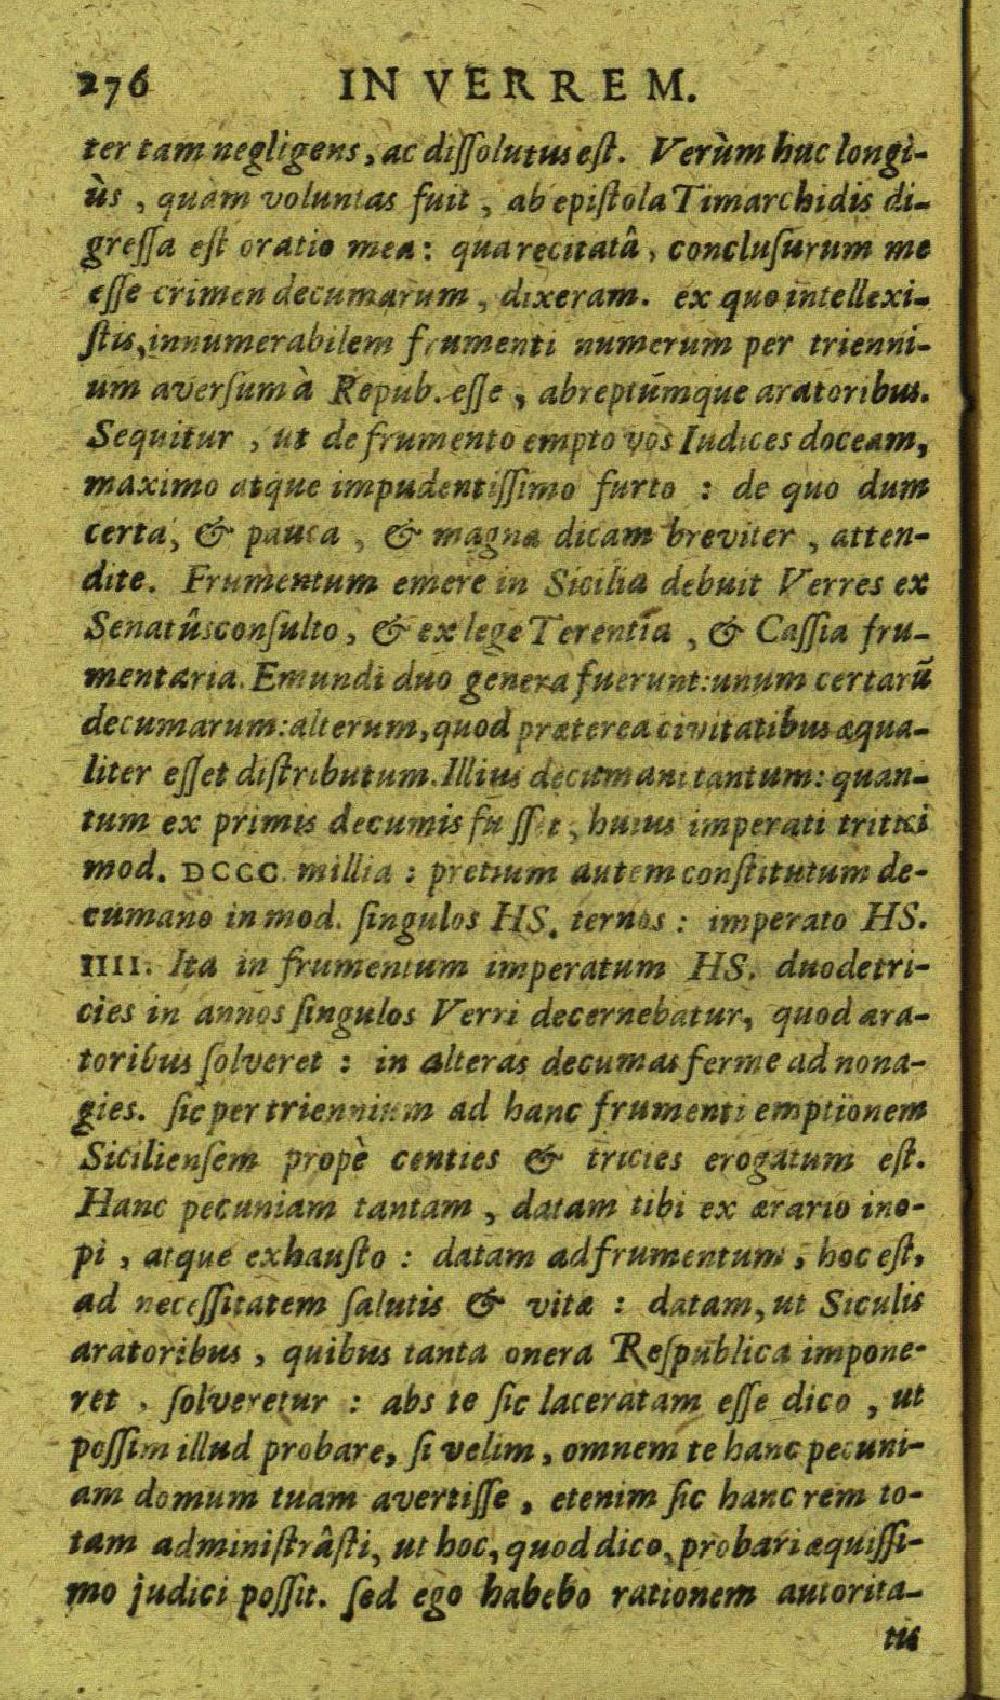 276 IN VERREM.
ter tam negligens, ac dissolutus est. Verùm huc longi-
ùs, quàm voluntas fuit, ab epistola Timarchidis di-
gressa est oratio mea: qua recitatâ, conclusurum me
esse crimen decumarum, dixeram. ex quo intellexi-
stis, innumerabilem frumenti numerum per trienni-
um aversum à Repub. esse, abreptúmque aratoribus.
Sequitur, ut de frumento empto vos Iudices doceam,
maximo atque impudentissimo furto : de quo dum
certa, & pauca, & magna dicam breviter, atten-
dite. Frumentum emere in Sicilia debuit Verres ex
Senatûsconsulto, & ex lege Terentia, & Cassia fru-
mentaria. Emundi duo genera fuerunt: unum certarū
decumarum: alterum, quod præterea civitatibus æqua-
liter esset distributum. Illius decumani tantum: quan-
tum ex primis decumis fuisset, huius imperati tritici
mod. DCCC. millia : pretium autem constitutum de-
cumano in mod. singulos HS. ternos : imperato HS.
IIII. Ita in frumentum imperatum HS. duodetri-
cies in annos singulos Verri decernebatur, quod ara-
toribus solveret : in alteras decumas ferme ad nona-
gies. sic per triennium ad hanc frumenti emptionem
Siciliensem propè centies & tricies erogatum est.
Hanc pecuniam tantam, datam tibi ex ærario ino-
pi, atque exhausto : datam ad frumentum, hoc est,
ad necessitatem salutis & vitæ : datam, ut Siculis
aratoribus, quibus tanta onera Respublica impone-
ret, solveretur : abs te sic laceratam esse dico, ut
possim illud probare, si velim, omnem te hanc pecuni-
am domum tuam avertisse, etenim sic hanc rem to-
tam administrâsti, ut hoc, quod dico, probari æquissi-
mo judici possit. sed ego habebo rationem autorita-
tis